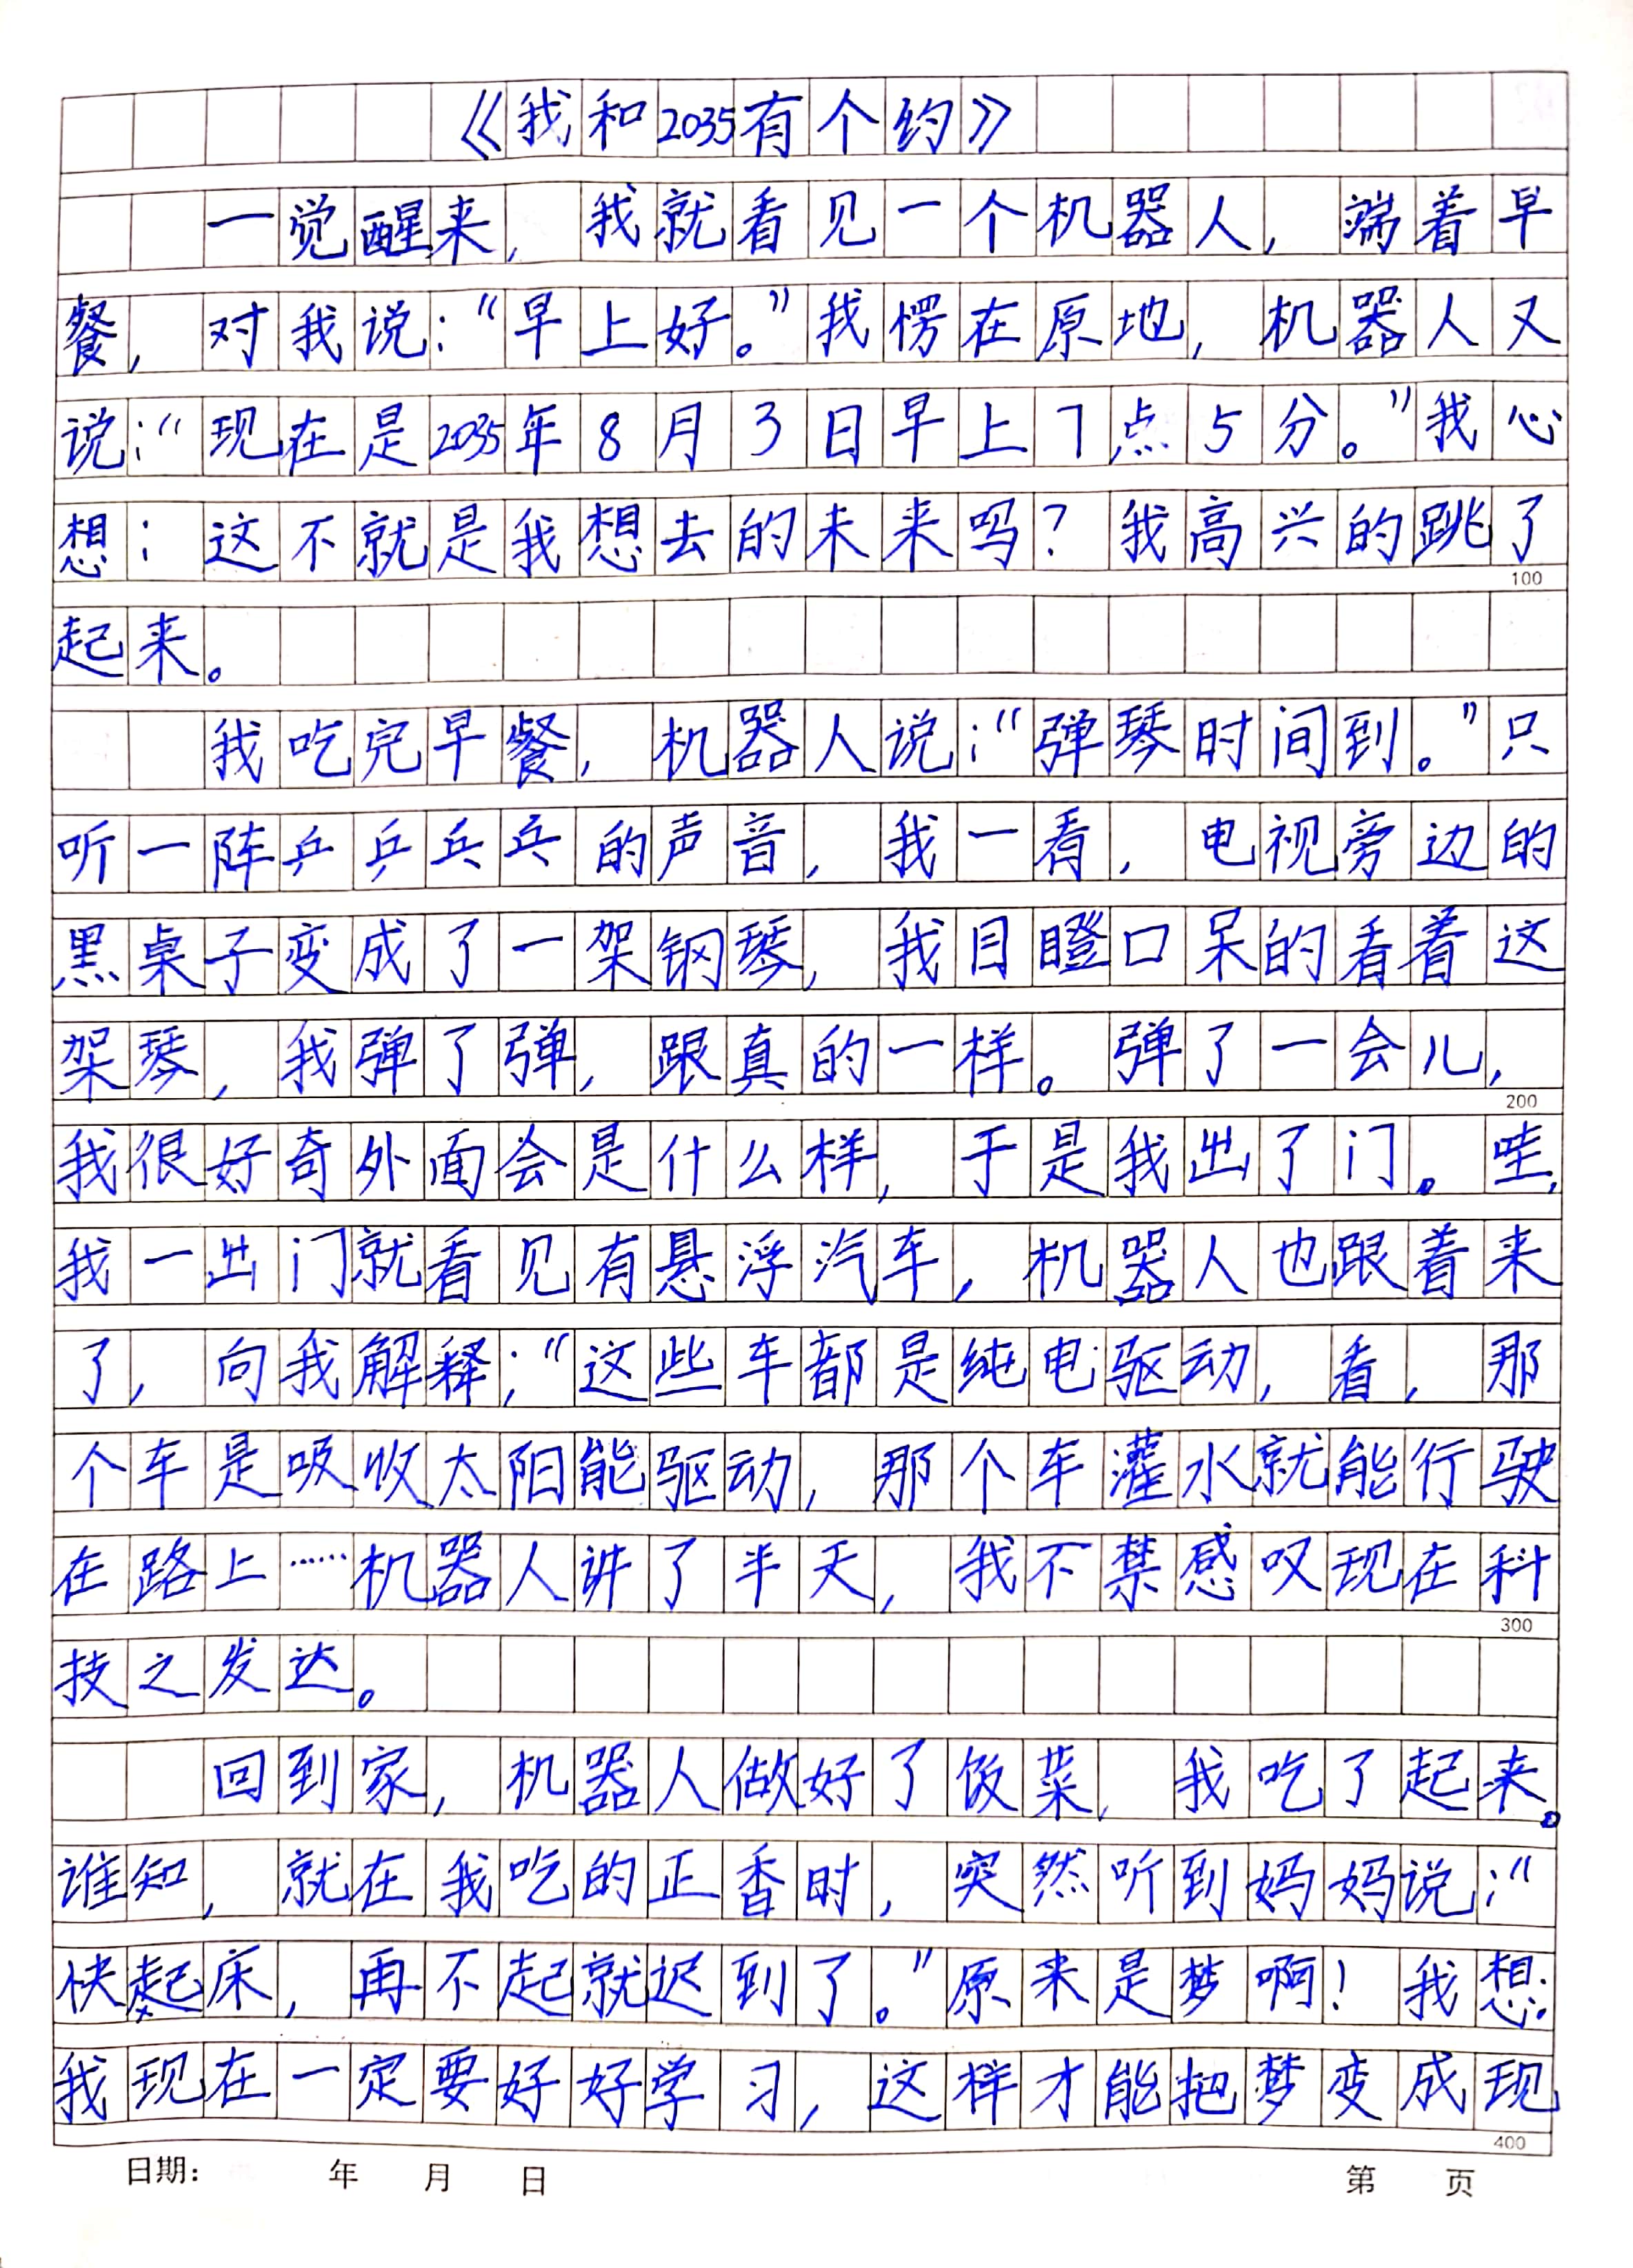 《我和2035有个约》
一觉醒来，我就看见一个机器人，端着早
餐，对我说：“早上好。”我愣在原地，机器人又
说：“现在是2035年8月3日早上7点5分。”我心
想：这不就是我想去的未来吗？我高兴的跳了
100
起来。
我吃完早餐，机器人说：“弹琴时间到。”只
听一阵乒乒乓乓的声音，我一看，电视旁边的
黑桌子变成了一架钢琴，我目瞪口呆的看着这
架琴，我弹了弹，跟真的一样。弹了一会儿，
200
我很好奇外面会是什么样，于是我出了门。哇，
我一出门就看见有悬浮汽车，机器人也跟着来
了，向我解释；“这些车都是纯电驱动，看，那
个车是吸收太阳能驱动，那个车灌水就能行驶
在路上……机器人讲了半天，我不禁感叹现在科
300
技之发达。
回到家，机器人做好了饭菜，我吃了起来。
谁知，就在我吃的正香时，突然听到妈妈说：“
快起床，再不起就迟到了。”原来是梦啊！我想：
我现在一定要好好学习，这样才能把梦变成现
400
日期： 年 月 日 第 页